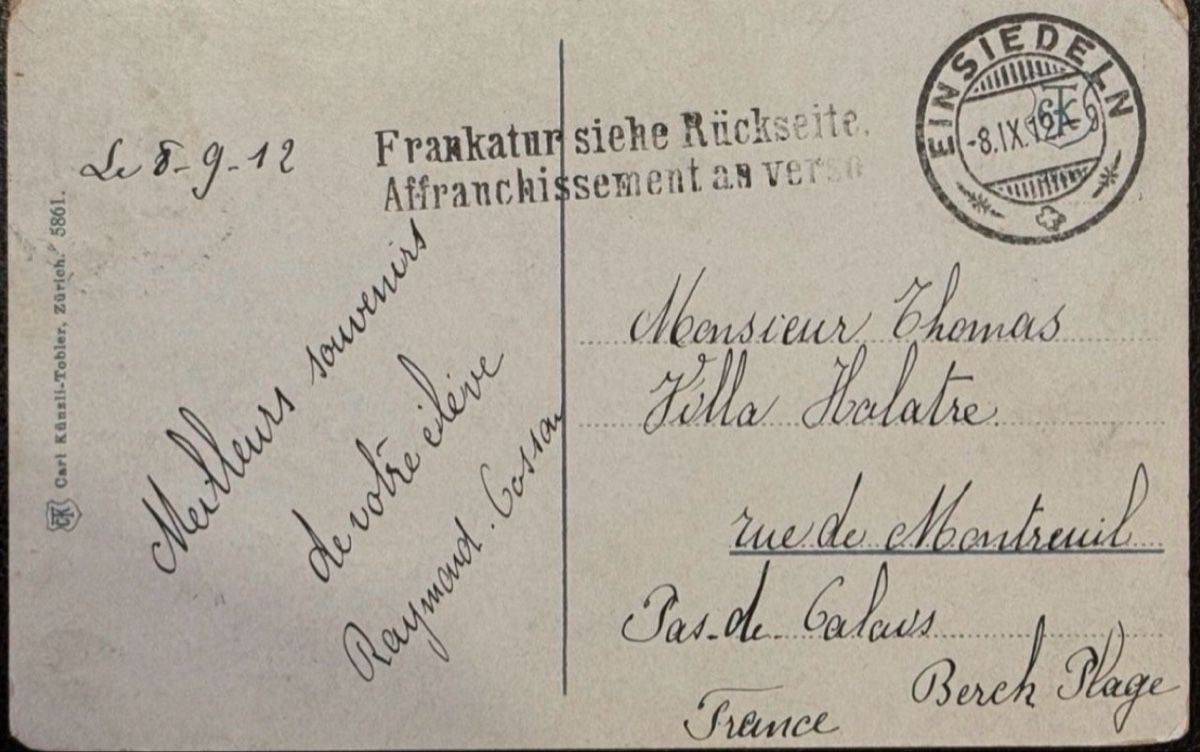 Le 8-9-12
Frankatur siehe Rückseite.
Affranchissement au verso
EINSIEDELN
-8.IX.12.
Meilleurs souvenirs
de votre élève
Raymond. Cosson
Monsieur Thomas
Villa Halatre
rue de Montreuil
Pas-de-Calais
Berck Plage
France
Carl Künzli-Tobler, Zürich. 5861.